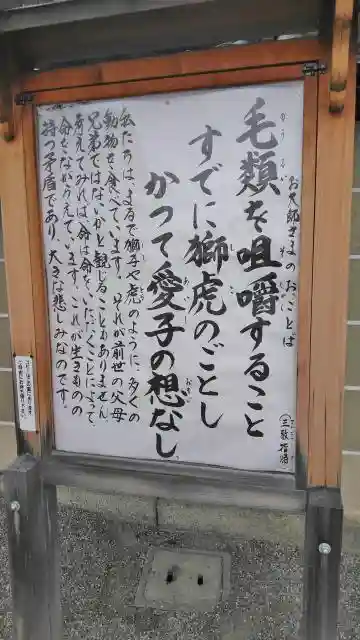 お大師さまのおことば
毛類を咀嚼すること
すでに獅虎のごとし
かつて愛子の想なし
三教指帰
私たちは、まるで獅子や虎のように、多くの
動物を食べています。それが前世の父母
兄弟ではないかと観じることもありません。
考えてみれば、命は命をいただくことによって、
命をながらえています。これが生きものの
持つ矛盾であり、大きな悲しみなのです。